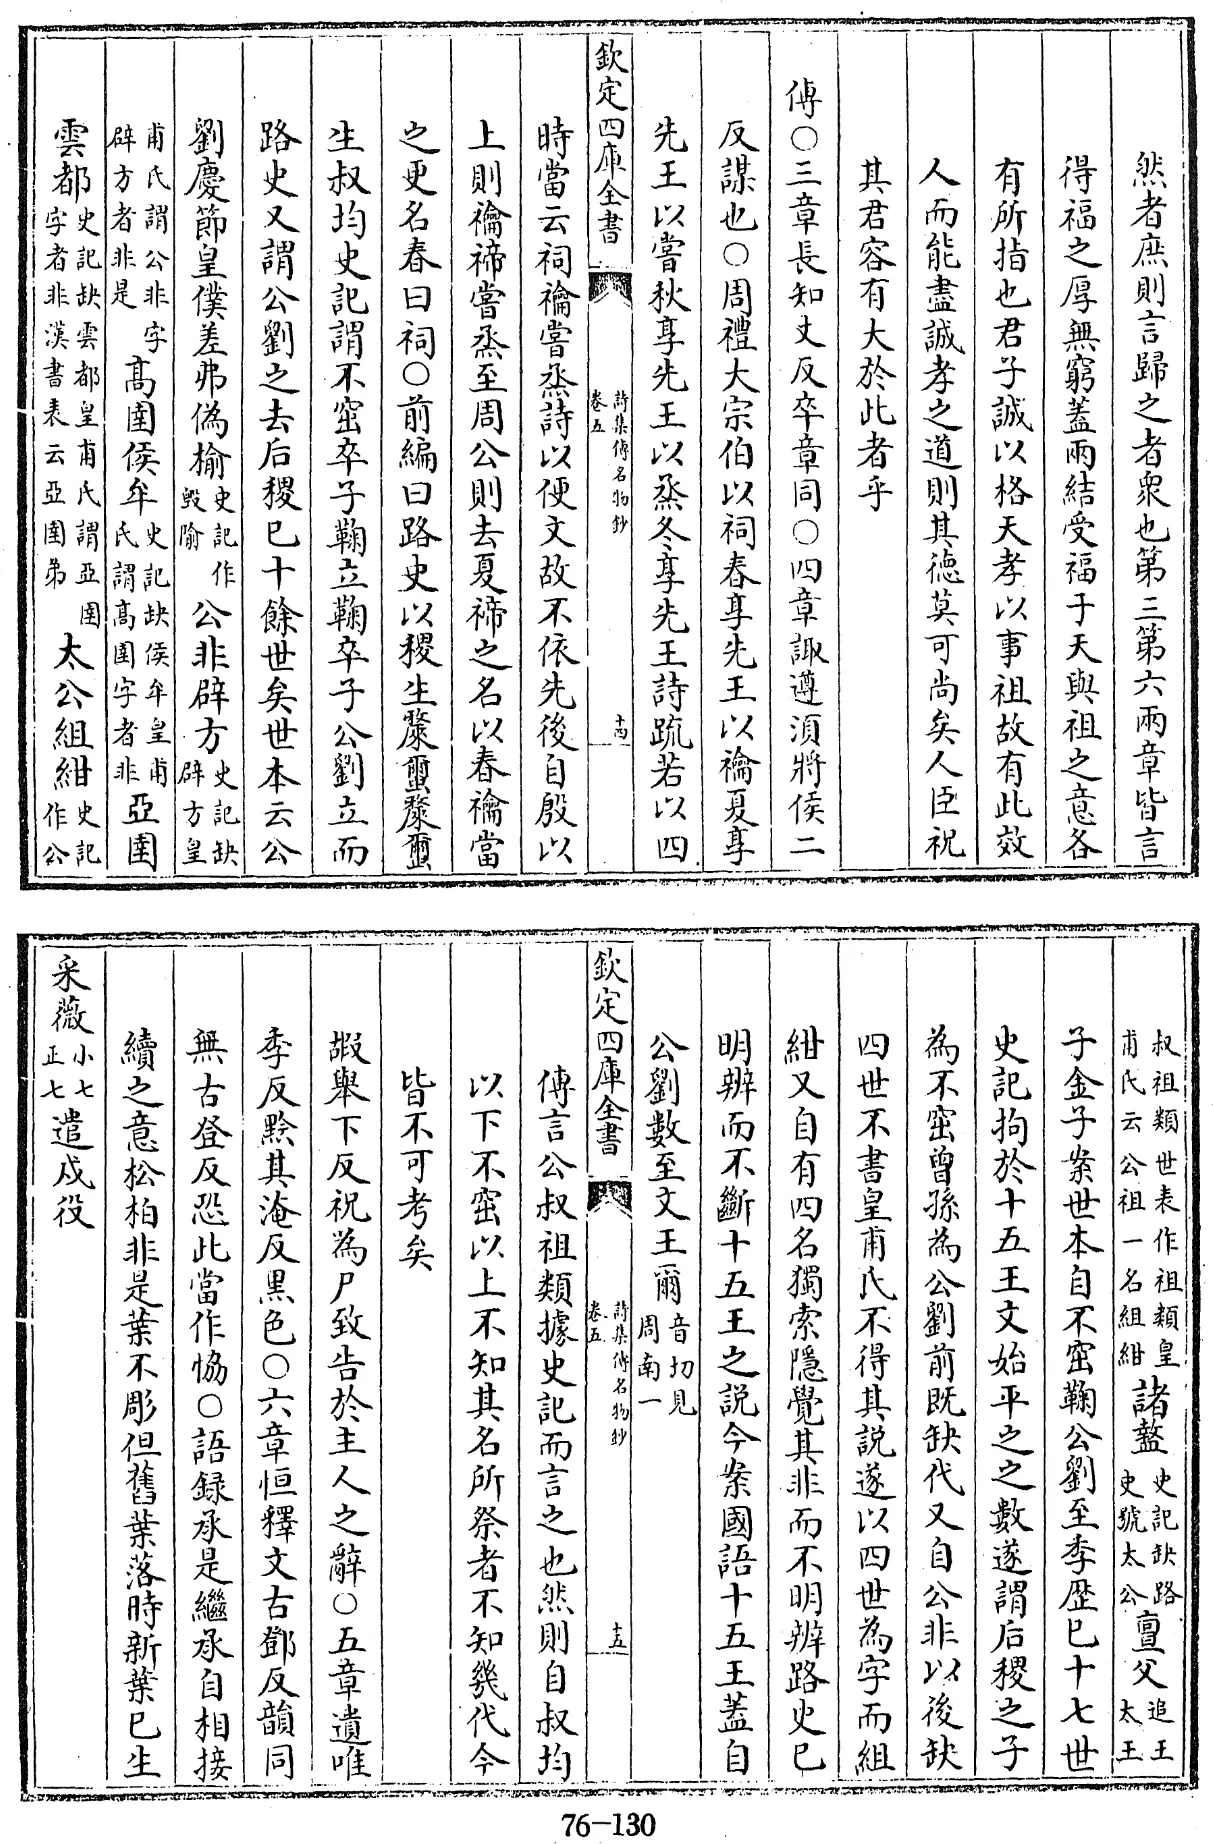 然者庶則言歸之者衆也第三第六兩章皆言
得福之厚無窮蓋兩結受福于天與祖之意各
有所指也君子誠以格天孝以事祖故有此效
人而能盡誠孝之道則其德莫可尚矣人臣祝
其君容有大於此者乎
傳○三章長知丈反卒章同○四章諏遵須將侯二
反謀也○周禮大宗伯以祠春享先王以禴夏享
先王以嘗秋享先王以烝冬享先王詩疏若以四
欽定四庫全書
詩集傳名物鈔
卷五
十四
時當云祠禴嘗烝詩以便文故不依先後自殷以
上則禴禘嘗烝至周公則去夏禘之名以春禴當
之更名春曰祠○前編曰路史以稷生漦蠒漦蠒
生叔均史記謂不窋卒子鞠立鞠卒子公劉立而
路史又謂公劉之去后稷已十餘世矣世本云公
劉慶節皇僕差弗偽榆史記作毀隃公非辟方史記缺辟方皇
甫氏謂公非字辟方者非是高圉侯牟史記缺侯牟皇甫氏謂高圉字者非亞圉
雲都史記缺雲都皇甫氏謂亞圉字者非漢書表云亞圉弟太公組紺史記作公
叔祖類世表作祖類皇甫氏云公祖一名組紺諸盩史記缺路史號太公亶父追王太王
子金子案世本自不窋鞠公劉至季歴已十七世
史記拘於十五王文始平之之數遂謂后稷之子
為不窋曾孫為公劉前既缺代又自公非以後缺
四世不書皇甫氏不得其説遂以四世為字而組
紺又自有四名獨索隱覺其非而不明辨路史已
明辨而不斷十五王之説今案國語十五王蓋自
公劉數至文王爾音切見周南一
欽定四庫全書
詩集傳名物鈔
卷五
十五
傳言公叔祖類據史記而言之也然則自叔均
以下不窋以上不知其名所祭者不知幾代今
皆不可考矣
嘏舉下反祝為尸致告於主人之辭○五章遺唯
季反黬其淹反黑色○六章恒釋文古鄧反韻同
無古登反恐此當作恊○語録承是繼承自相接
續之意松柏非是葉不彫但舊葉落時新葉已生
采薇小七正七遣戍役
76-130